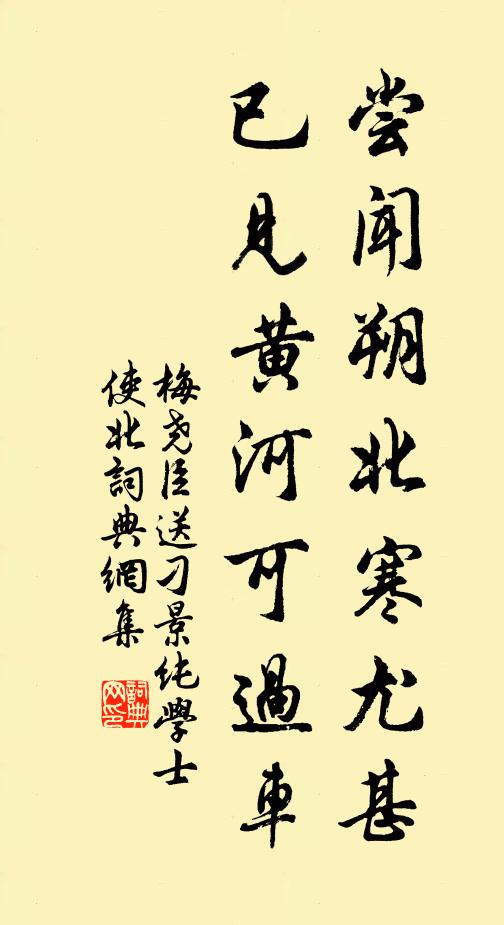 尝闻朔北寒尤甚
已见黄河可過車
梅尧臣送刁景纯學士
使北詞典網集
詞典网印